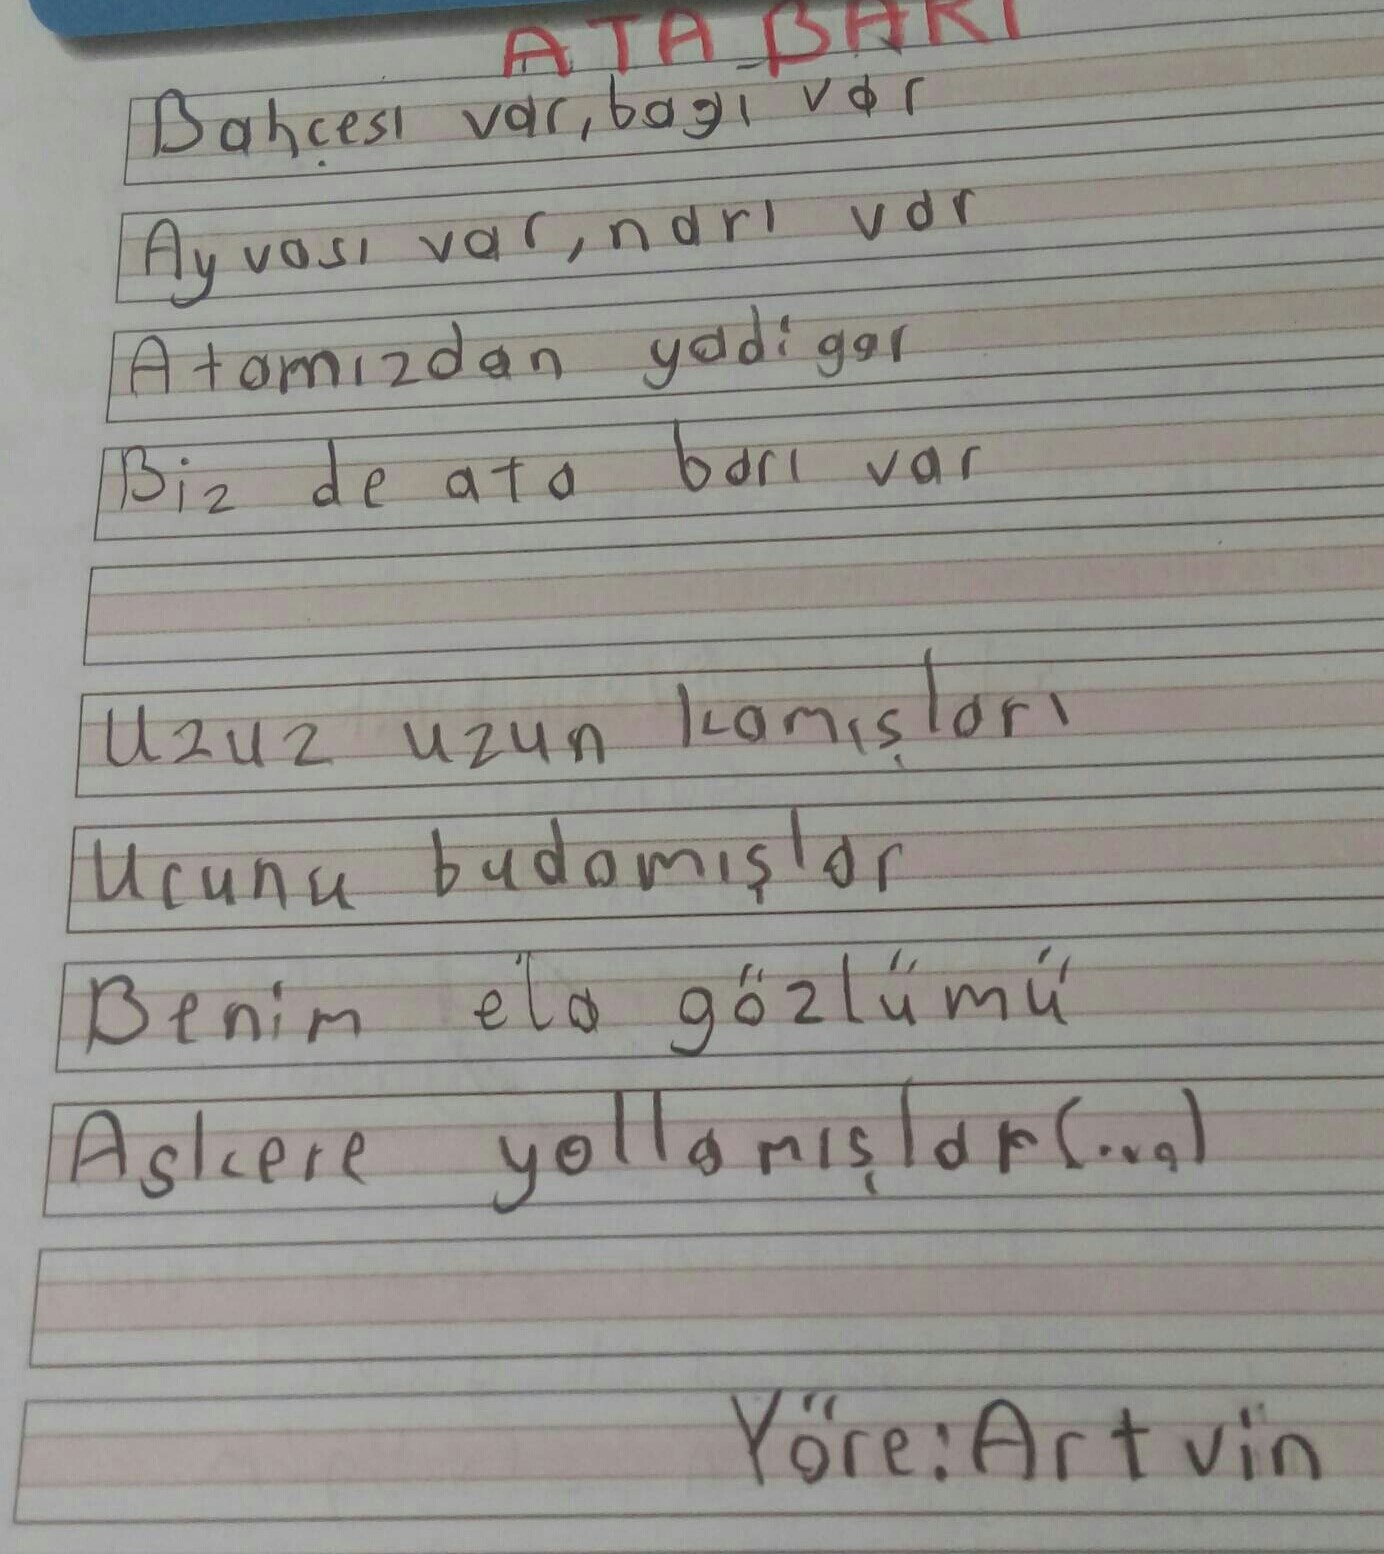 ATA BARI
Bahçesı var, bagı var
Ayvası var, narı var
Atamızdan yadigar
Biz de ata barı var
Uzuz uzun kamışları
Ucunu budamışlar
Benim ela gözlümü
Askere yollamışlar(...)
Yöre: Artvin